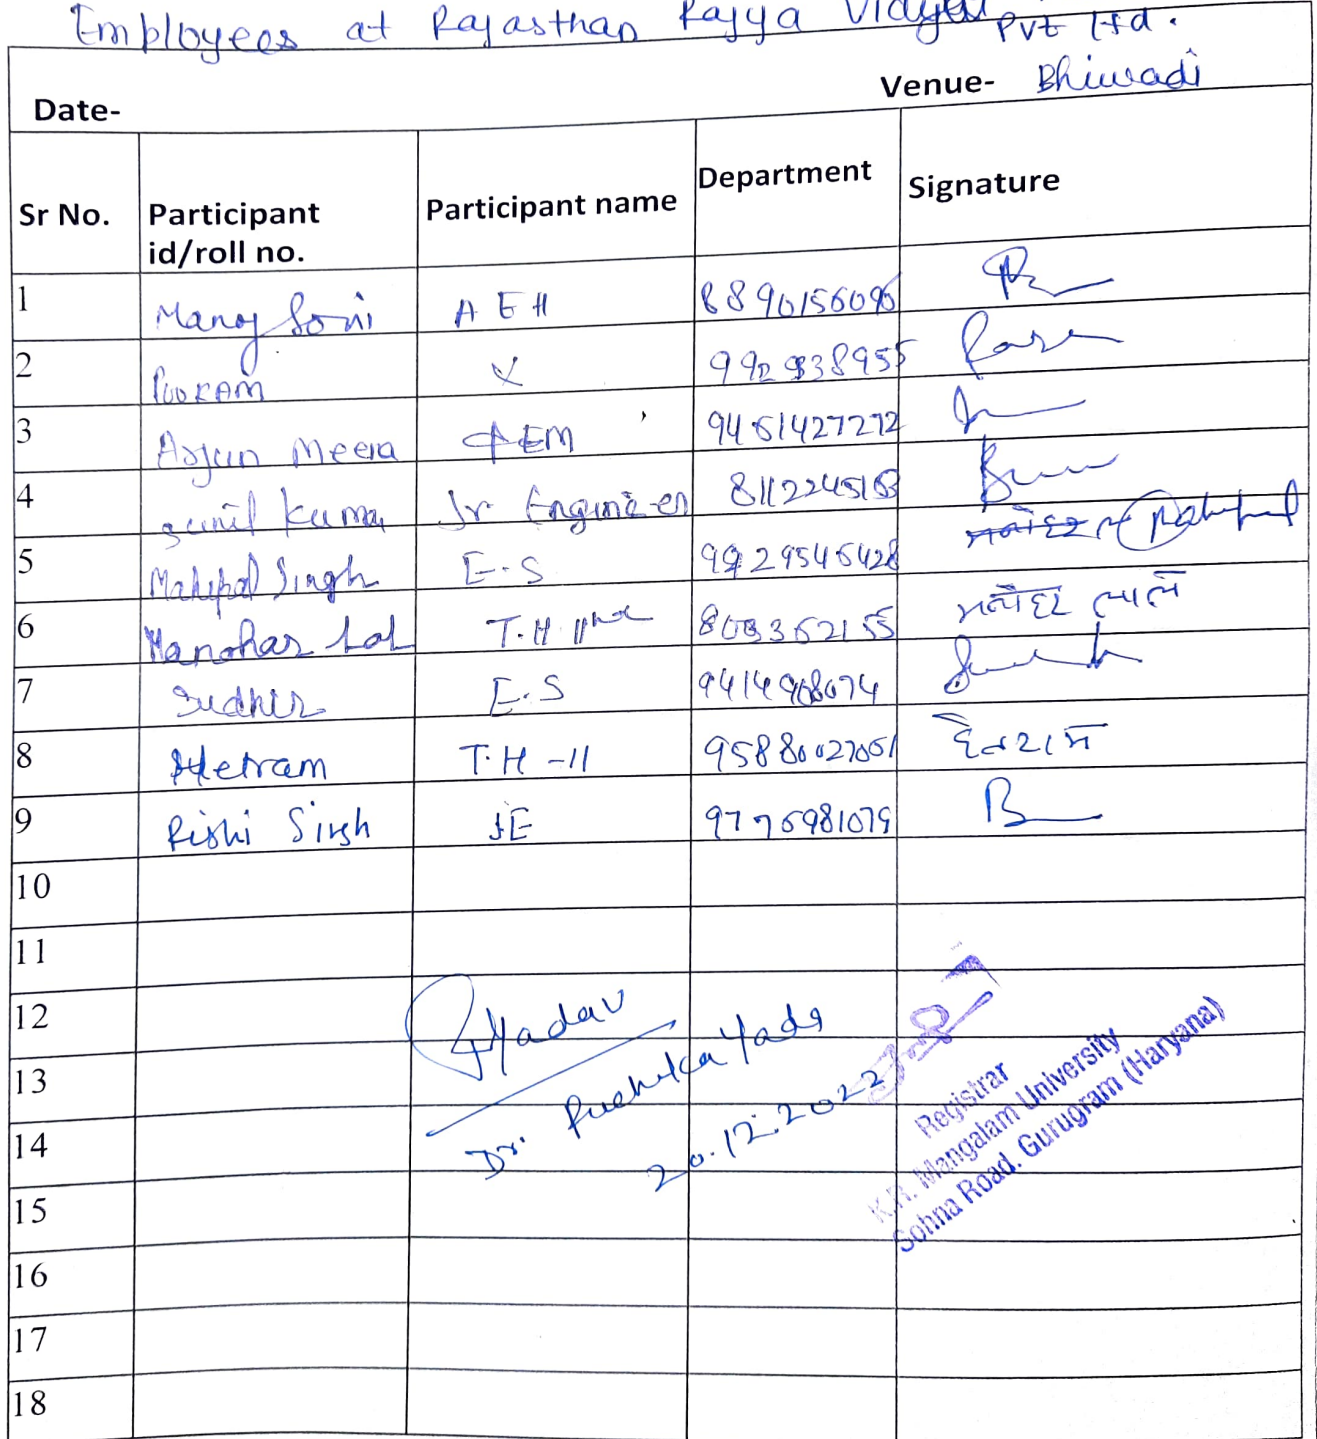 Employees at Rajasthan Rajya Vidyut
Pvt ltd.
Venue- Bhiwadi
Date-
Sr No. Participant id/roll no. Participant name Department Signature
1 Manoj Soni A E II 8890156096
2 POOKAM X
3 Arjun Meena AEM 9461427272
4 Sunil Kumar Jr. Engineer 8112245163
5 Mahipal Singh E.S 9929546428 Mahipal
6 Manohar Lal T.H. मनोहर लाल
7 Sudhir E.S 9414908074
8 Hetram T.H-II 95880027051 हेतराम
9 Rishi Singh JE 9776981079
10
11
12
13
14
15
16
17
18
Yadav
Dr. Yada
20.12.2022
Registrar
K.R. Mangalam University
Sohna Road. Gurugram (Haryana)